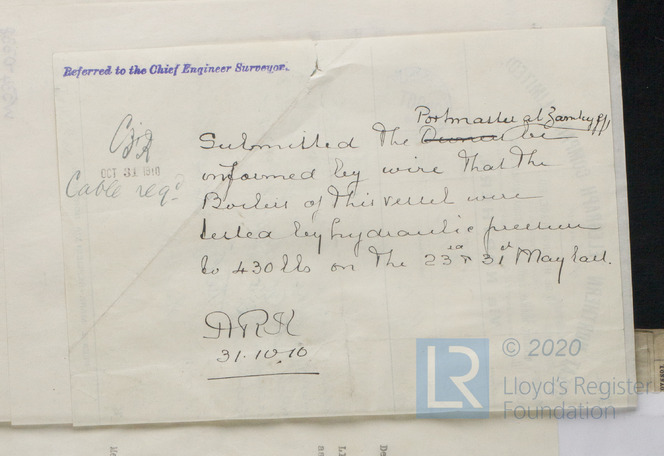 Referred to the Chief Engineer Surveyor.
OCT 31 1910
Cable reqd
Postmaster at
Submitted the Owners be
informed by wire that the
Boilers of this vessel were
tested by hydraulic pressure
to 430 lbs on the 23rd & 31st May last.
ARK
31.10.10
LR
© 2020
Lloyd's Register
Foundation